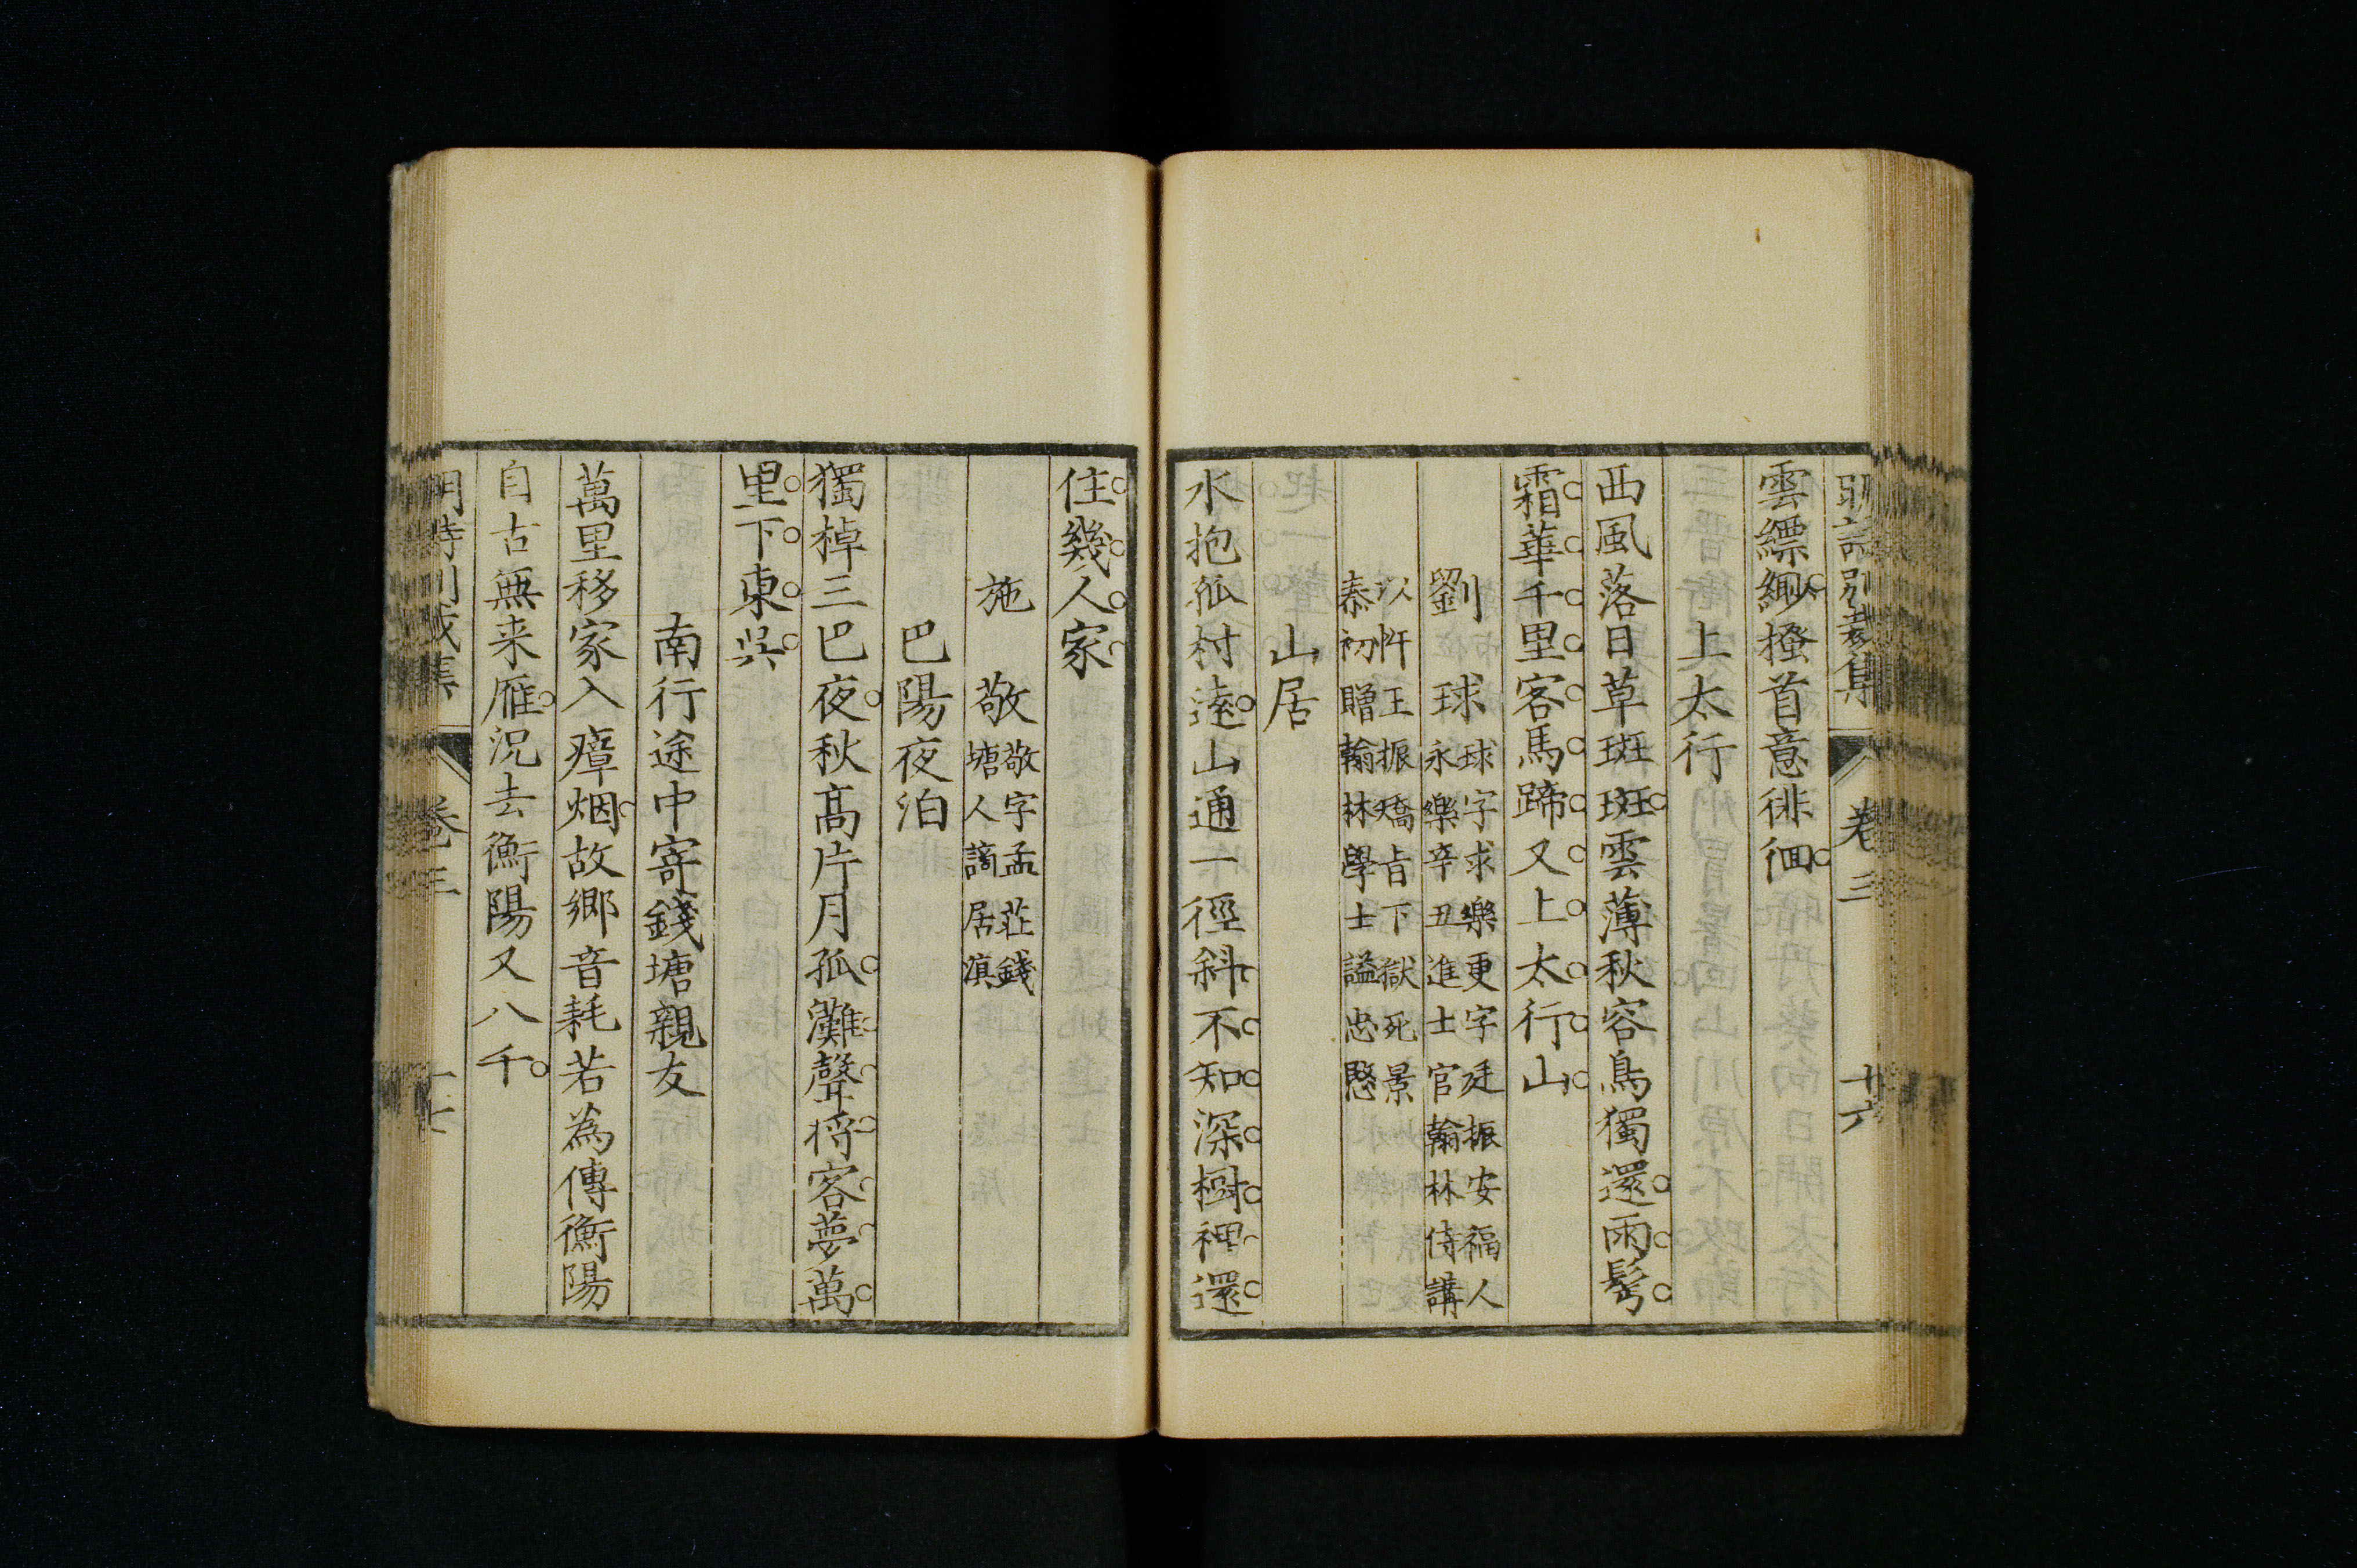 明詩別裁集 卷三 廿六
雲縹緲搔首意徘徊
上太行
西風落日草斑斑雲薄秋容鳥獨還兩鬢
霜華千里客馬蹄又上太行山
劉 球 球字求樂更字廷振安福人
永樂辛丑進士官翰林侍講
以忤王振矯旨下獄死景
泰初贈翰林學士謚忠愍
山居
水抱孤村遠山通一徑斜不知深樹裡還
住幾人家
施 敬 敬字孟莊錢
塘人謫居滇
巴陽夜泊
獨棹三巴夜秋高片月孤灘聲將客夢萬
里下東吳
南行途中寄錢塘親友
萬里移家入瘴烟故鄉音耗若為傳衡陽
自古無来雁況去衡陽又八千
明詩別裁集 卷三